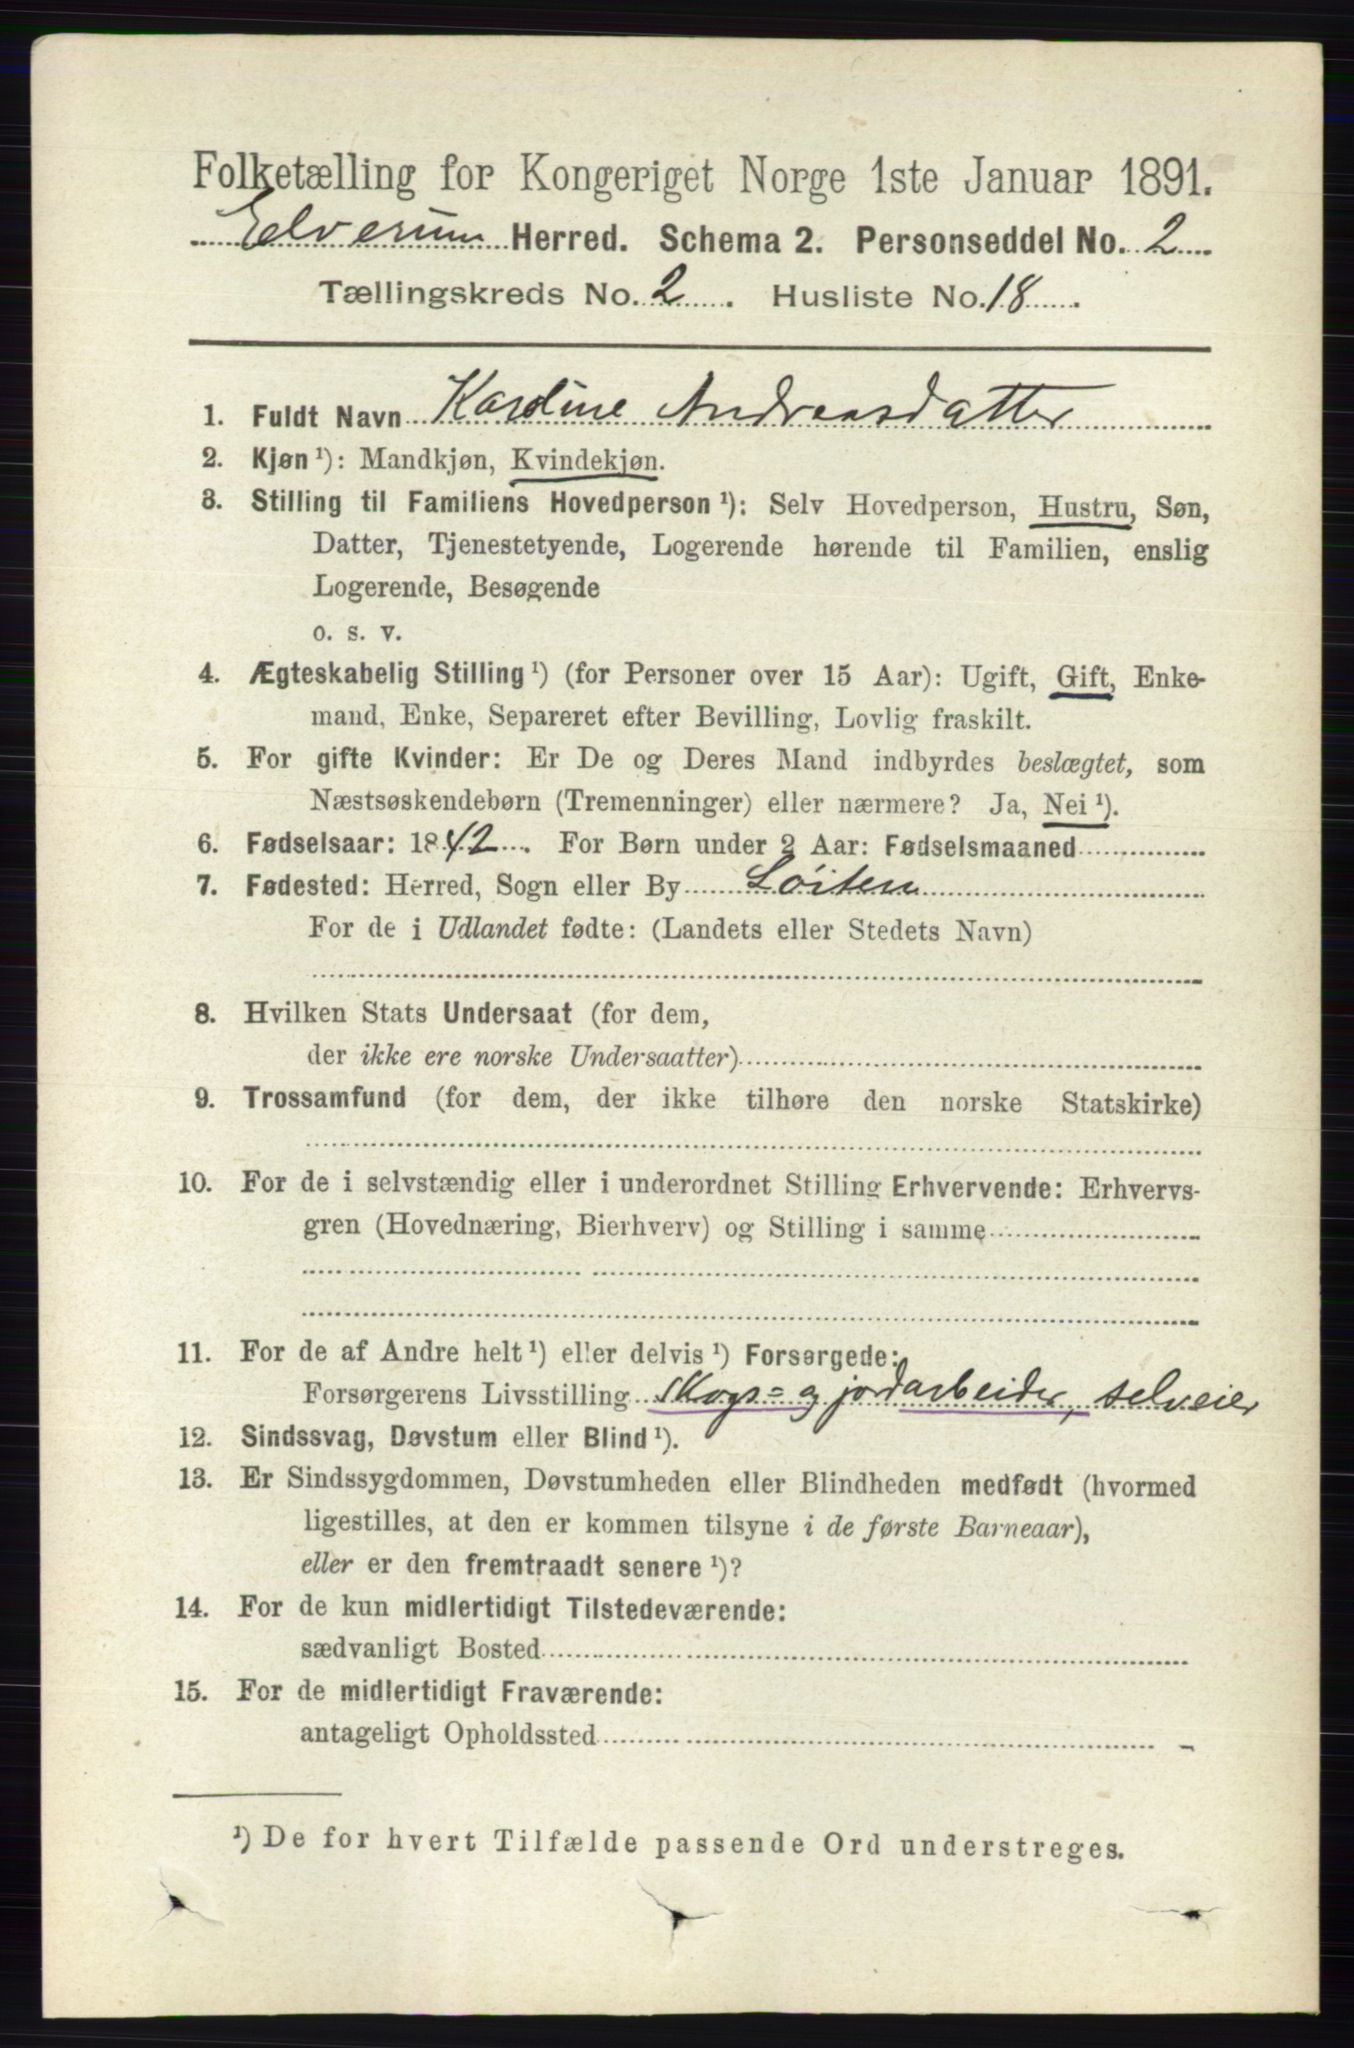 Folketælling for Kongeriget Norge 1ste Januar 1891.
Elverum Herred. Schema 2. Personseddel No. 2
Tællingskreds No. 2. Husliste No. 18.
1. Fuldt Navn Karoline Andreasdatter
2. Kjøn ¹): Mandkjøn, Kvindekjøn.
3. Stilling til Familiens Hovedperson ¹): Selv Hovedperson, Hustru, Søn,
Datter, Tjenestetyende, Logerende hørende til Familien, enslig
Logerende, Besøgende
o. s. v.
4. Ægteskabelig Stilling ¹) (for Personer over 15 Aar): Ugift, Gift, Enke-
mand, Enke, Separeret efter Bevilling, Lovlig fraskilt.
5. For gifte Kvinder: Er De og Deres Mand indbyrdes beslægtet, som
Næstsøskendebørn (Tremenninger) eller nærmere? Ja, Nei ¹).
6. Fødselsaar: 1842. For Børn under 2 Aar: Fødselsmaaned
7. Fødested: Herred, Sogn eller By Löiten
For de i Udlandet fødte: (Landets eller Stedets Navn)
8. Hvilken Stats Undersaat (for dem,
der ikke ere norske Undersaatter)
9. Trossamfund (for dem, der ikke tilhøre den norske Statskirke)
10. For de i selvstændig eller i underordnet Stilling Erhvervende: Erhvervs-
gren (Hovednæring, Bierhverv) og Stilling i samme
11. For de af Andre helt ¹) eller delvis ¹) Forsørgede:
Forsørgerens Livsstilling Skogs= og jordarbeider, selveier
12. Sindssvag, Døvstum eller Blind ¹).
13. Er Sindssygdommen, Døvstumheden eller Blindheden medfødt (hvormed
ligestilles, at den er kommen tilsyne i de første Barneaar),
eller er den fremtraadt senere ¹)?
14. For de kun midlertidigt Tilstedeværende:
sædvanligt Bosted
15. For de midlertidigt Fraværende:
antageligt Opholdssted
¹) De for hvert Tilfælde passende Ord understreges.